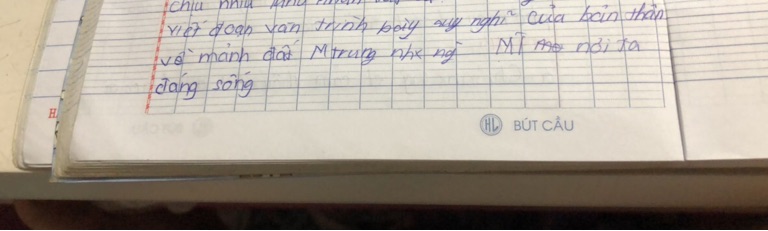 chịu nhiều
viết đoạn văn trình bày suy nghĩ của bản thân
về mảnh đất Mtrung nhx ng MT nơi ta
đang sống
HL BÚT CẦU
H